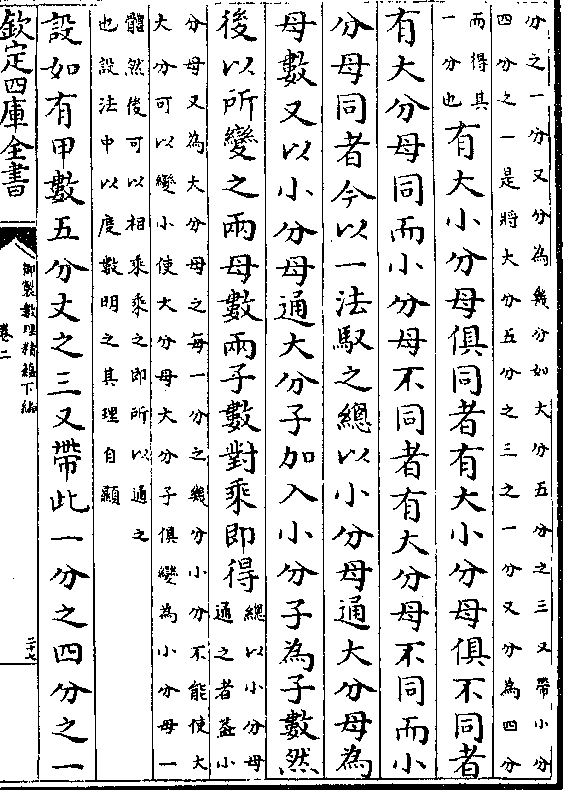 分之一分又分為幾分如大分五分之三又帶小分
四分之一是將大分五分之三之一分又分為四分
而得其
一分也有大小分母俱同者有大小分母俱不同者
有大分母同而小分母不同者有大分母不同而小
分母同者今以一法馭之總以小分母通大分母為
母數又以小分母通大分子加入小分子為子數然
後以所變之兩母數兩子數對乘即得總以小分母
通之者葢小
分母又為大分母之每一分之幾分小分不能使大
大分可以變小使大分母大分子俱變為小分母一
體然後可以相乘乘之即所以通之
也設法中以度數明之其理自顯
設如有甲數五分丈之三又帶此一分之四分之一
欽定四庫全書
御製數理精蘊下編
卷二
二十七